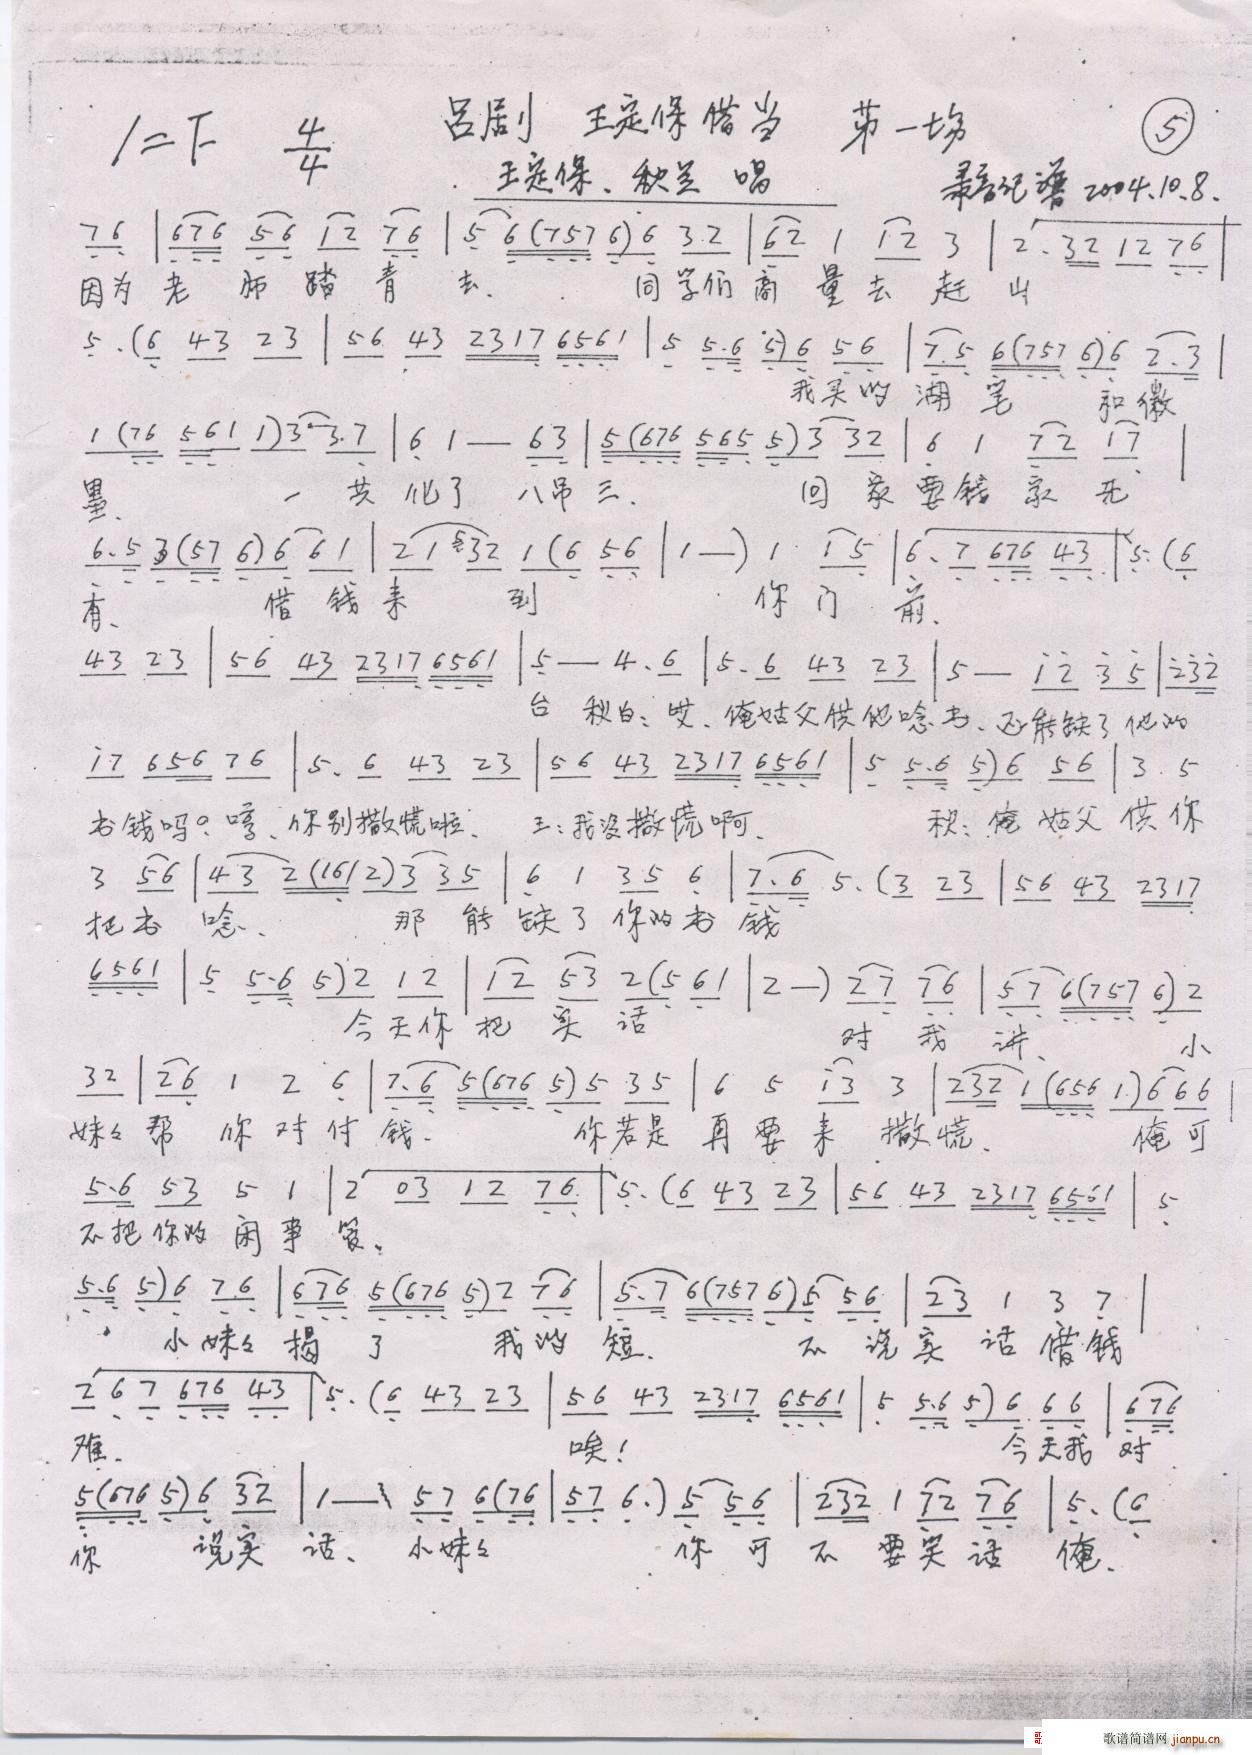 1=F 4/4 吕剧 王定保借当 第一场 ⑤
王定保、秋兰 唱 录音记谱 2004.10.8.
76 | 676 56 12 76 | 5 6(757 6)6 3 2 | 62 1 12 3 | 2. 32 12 76 |
因为 老 师 踏 青 去、 同学们商 量 去 赶 山
5.(6 43 23 | 56 43 2317 6561 | 5 5.6 5)6 56 | 7.5 6(757 6)6 2.3 |
我买的 湖 笔 和徽
1(76 561 1)3 3.7 | 6 1 — 63 | 5(676 565 5)3 32 | 6 1 72 17 |
墨、 一 共 化了 八吊三、 回 家 要钱 家 无
6.5 3(57 6)6 61 | 21 32 1(6 56 | 1 —) 1 15 | 6.7 676 43 | 5.(6
有、 借 钱来 到 你 门 前、
43 23 | 56 43 2317 6561 | 5 — 4.6 | 5.6 43 23 | 5 — 12 35 | 232
台 秋白：哎、俺姑父供他唸书、还能缺了他的
17 656 76 | 5.6 43 23 | 56 43 2317 6561 | 5 5.6 5)6 56 | 3 5
书钱吗？哼、你别撒慌啦、 王：我没撒慌啊、 秋：俺 姑父 供 你
3 56 | 43 2(161 2)3 35 | 6 1 35 6 | 7.6 5.(3 23 | 56 43 2317
把书 唸、 那 能 缺了 你的书 钱
6561 | 5 5.6 5)2 12 | 12 53 2(5 61 | 2 —) 27 76 | 57 6(757 6)2
今天你 把 实 话 对 我 讲、 小
32 | 26 1 2 6 | 7.6 5(676 5)5 35 | 6 5 13 3 | 232 1(656 1.)6 66
妹々 帮 你 对 付 钱、 你若是 再 要 来 撒 慌、 俺可
5.6 53 5 1 | 2 03 12 76 | 5.(6 43 23 | 56 43 2317 6561 | 5
不把你的 闲 事 管、
5.6 5)6 76 | 676 5(676 5)2 76 | 5.7 6(757 6)5 56 | 23 1 3 7 |
小 妹々 揭 了 我的 短、 不 说 实 话 借 钱
2 6 7 676 43 | 5.(6 43 23 | 56 43 2317 6561 | 5 5.6 5)6 66 | 676
难、 唉！ 今天我 对
5(676 5)6 32 | 1 — 57 6(76 | 57 6.)5 56 | 232 1 72 76 | 5.(6
你 说实 话、 小妹々 你 可 不 要 笑 话 俺、
歌谱简谱网 jianpu.cn